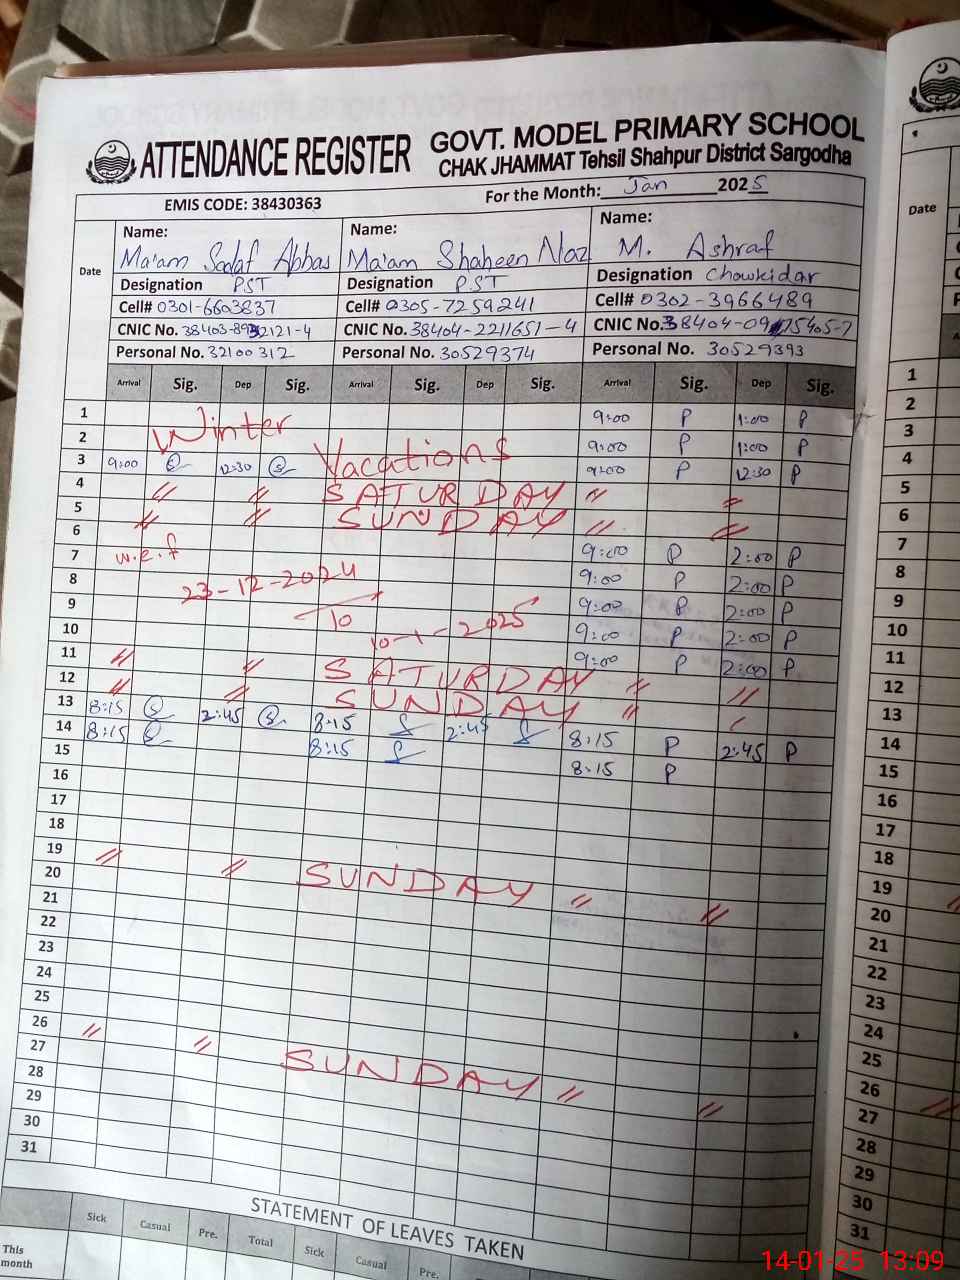 ATTENDANCE REGISTER GOVT. MODEL PRIMARY SCHOOL
CHAK JHAMMAT Tehsil Shahpur District Sargodha
EMIS CODE: 38430363 For the Month: Jan 2025
Date Name: Name: Name:
Ma'am Sadaf Abbas Ma'am Shaheen Naz M. Ashraf
Designation PST Designation PST Designation Chowkidar
Cell# 0301-6603837 Cell# 0305-7259241 Cell# 0302-3966489
CNIC No. CNIC No. 38404-2211651-4 CNIC No.
Personal No. 32100312 Personal No. 30529374 Personal No. 30529393
Arrival Sig. Dep Sig. Arrival Sig. Dep Sig. Arrival Sig. Dep Sig.
1 Winter 9:00 P 1:00 P
2 Vacations 9:00 P 1:00 P
3 9:00 12:30 9:00 P 12:30 P
4 " " SATURDAY " "
5 " " SUNDAY " "
6 w.e.f 9:00 P 2:00 P
7 23-12-2024 9:00 P 2:00 P
8 To 9:00 P 2:00 P
9 10-1-2025 9:00 P 2:00 P
10 9:00 P 2:00 P
11 " " SATURDAY " "
12 " " SUNDAY " "
13 8:15 2:45 8:15 2:45 8:15 P 2:45 P
14 8:15 8:15 8:15 P
15
16
17
18
19 " " SUNDAY " "
20
21
22
23
24
25
26 " " SUNDAY " "
27
28
29
30
31
STATEMENT OF LEAVES TAKEN
Sick Casual Pre. Total Sick Casual Pre.
This month
Date
1
2
3
4
5
6
7
8
9
10
11
12
13
14
15
16
17
18
19
20
21
22
23
24
25
26
27
28
29
30
31
14-01-25 13:09